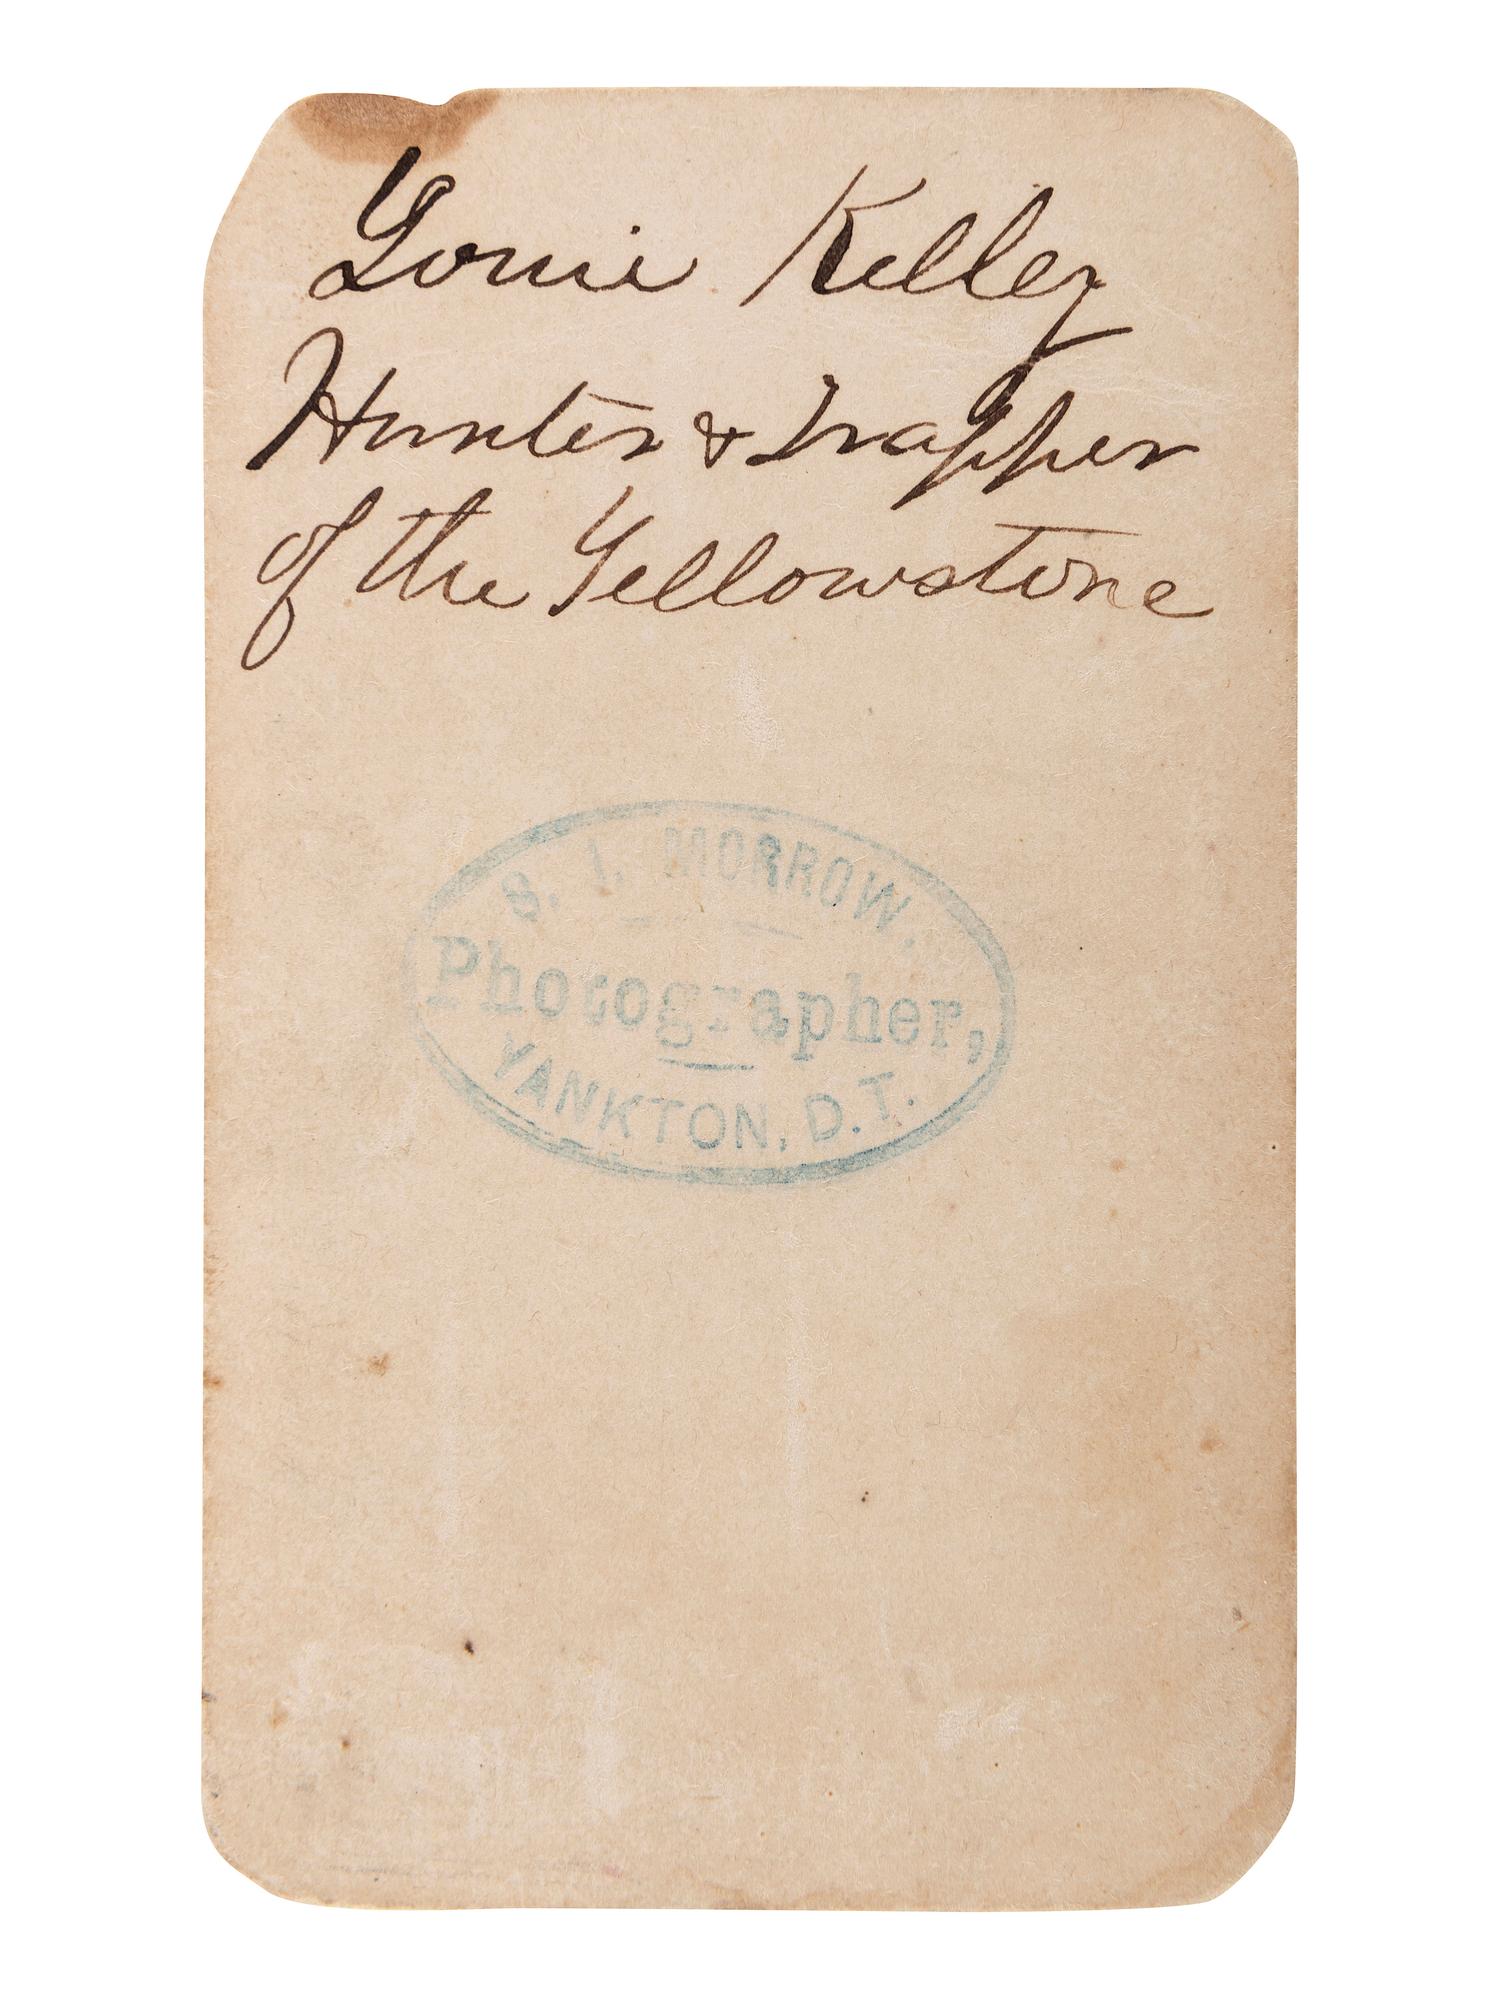 Louie Kelley
Hunter & Trapper
of the Yellowstone
S. I. MORROW,
Photographer,
YANKTON, D.T.